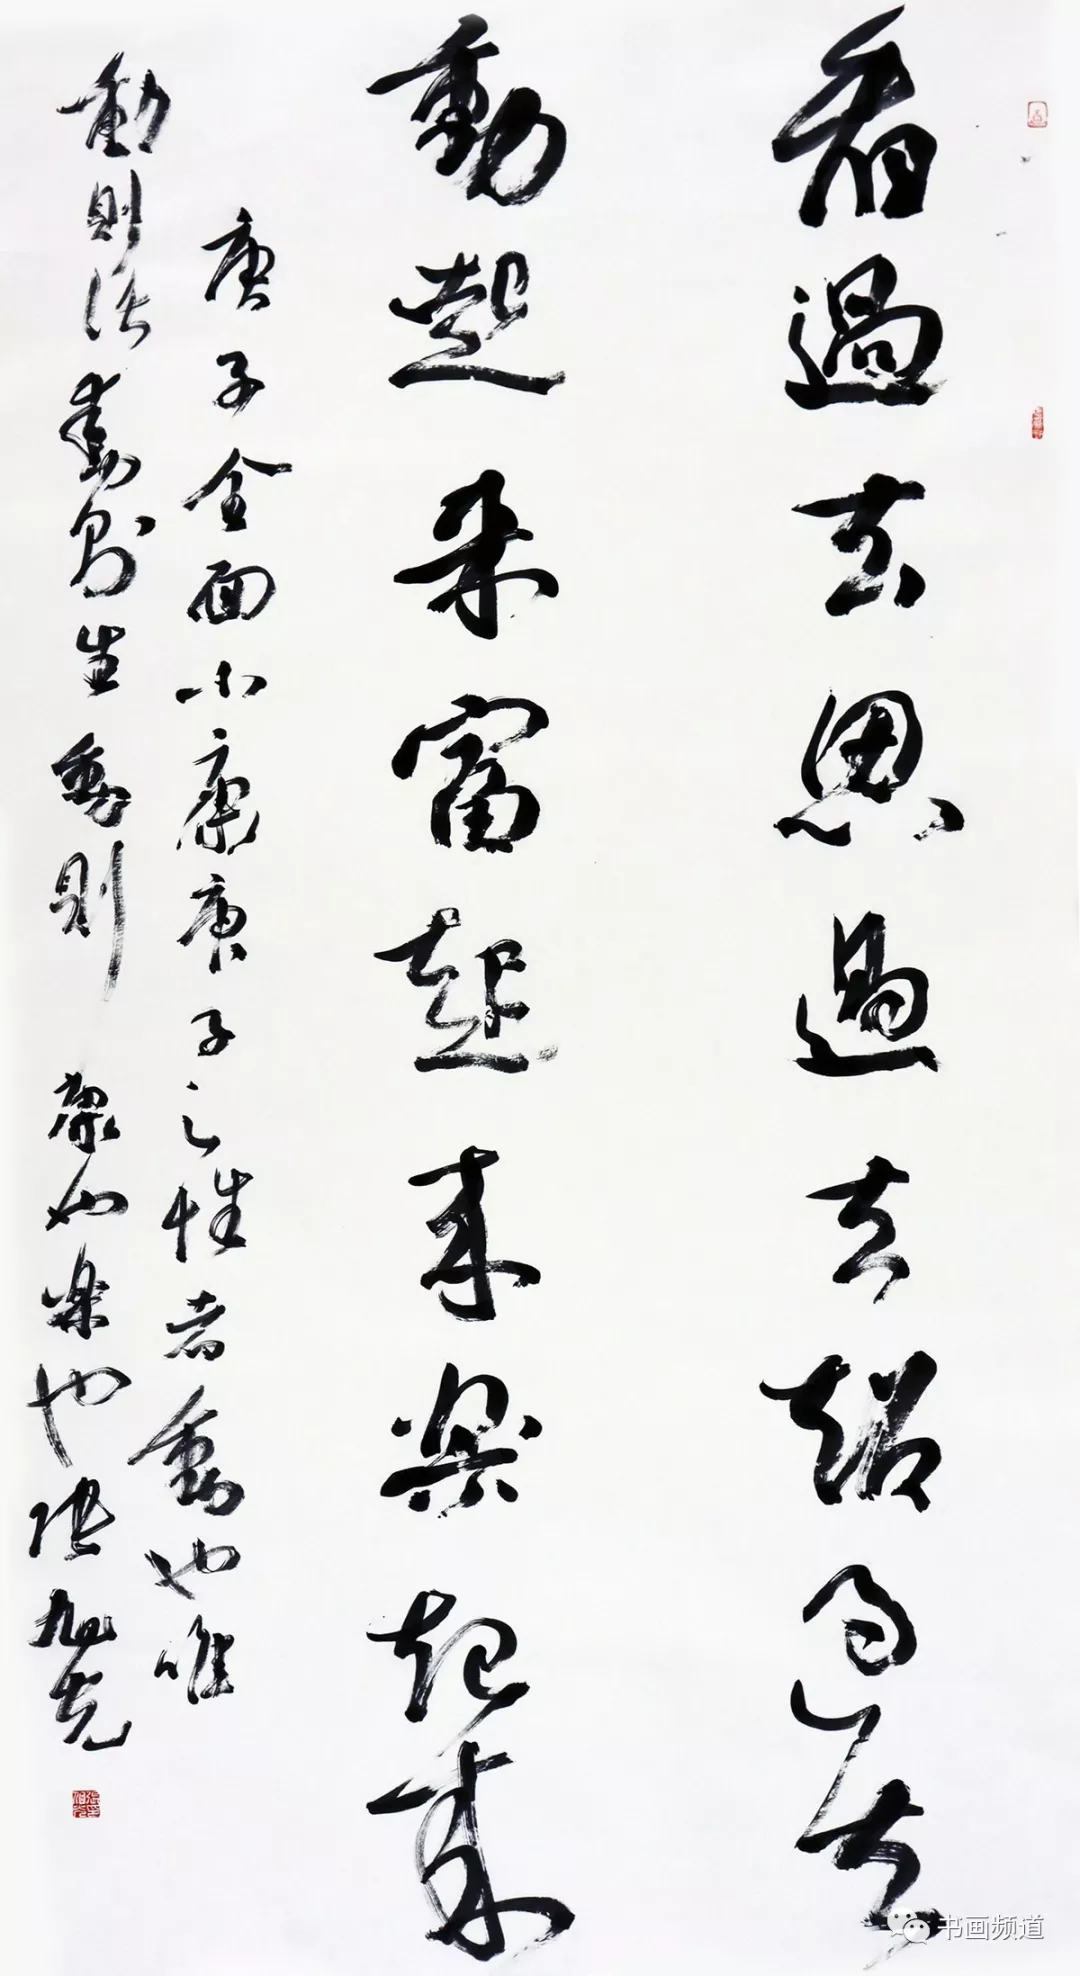 看過去思過去超過去
動起来富起来樂起来
庚子全面小康庚子之性者動也唯
動則活動則生動則康如樂也张旭光
书画频道